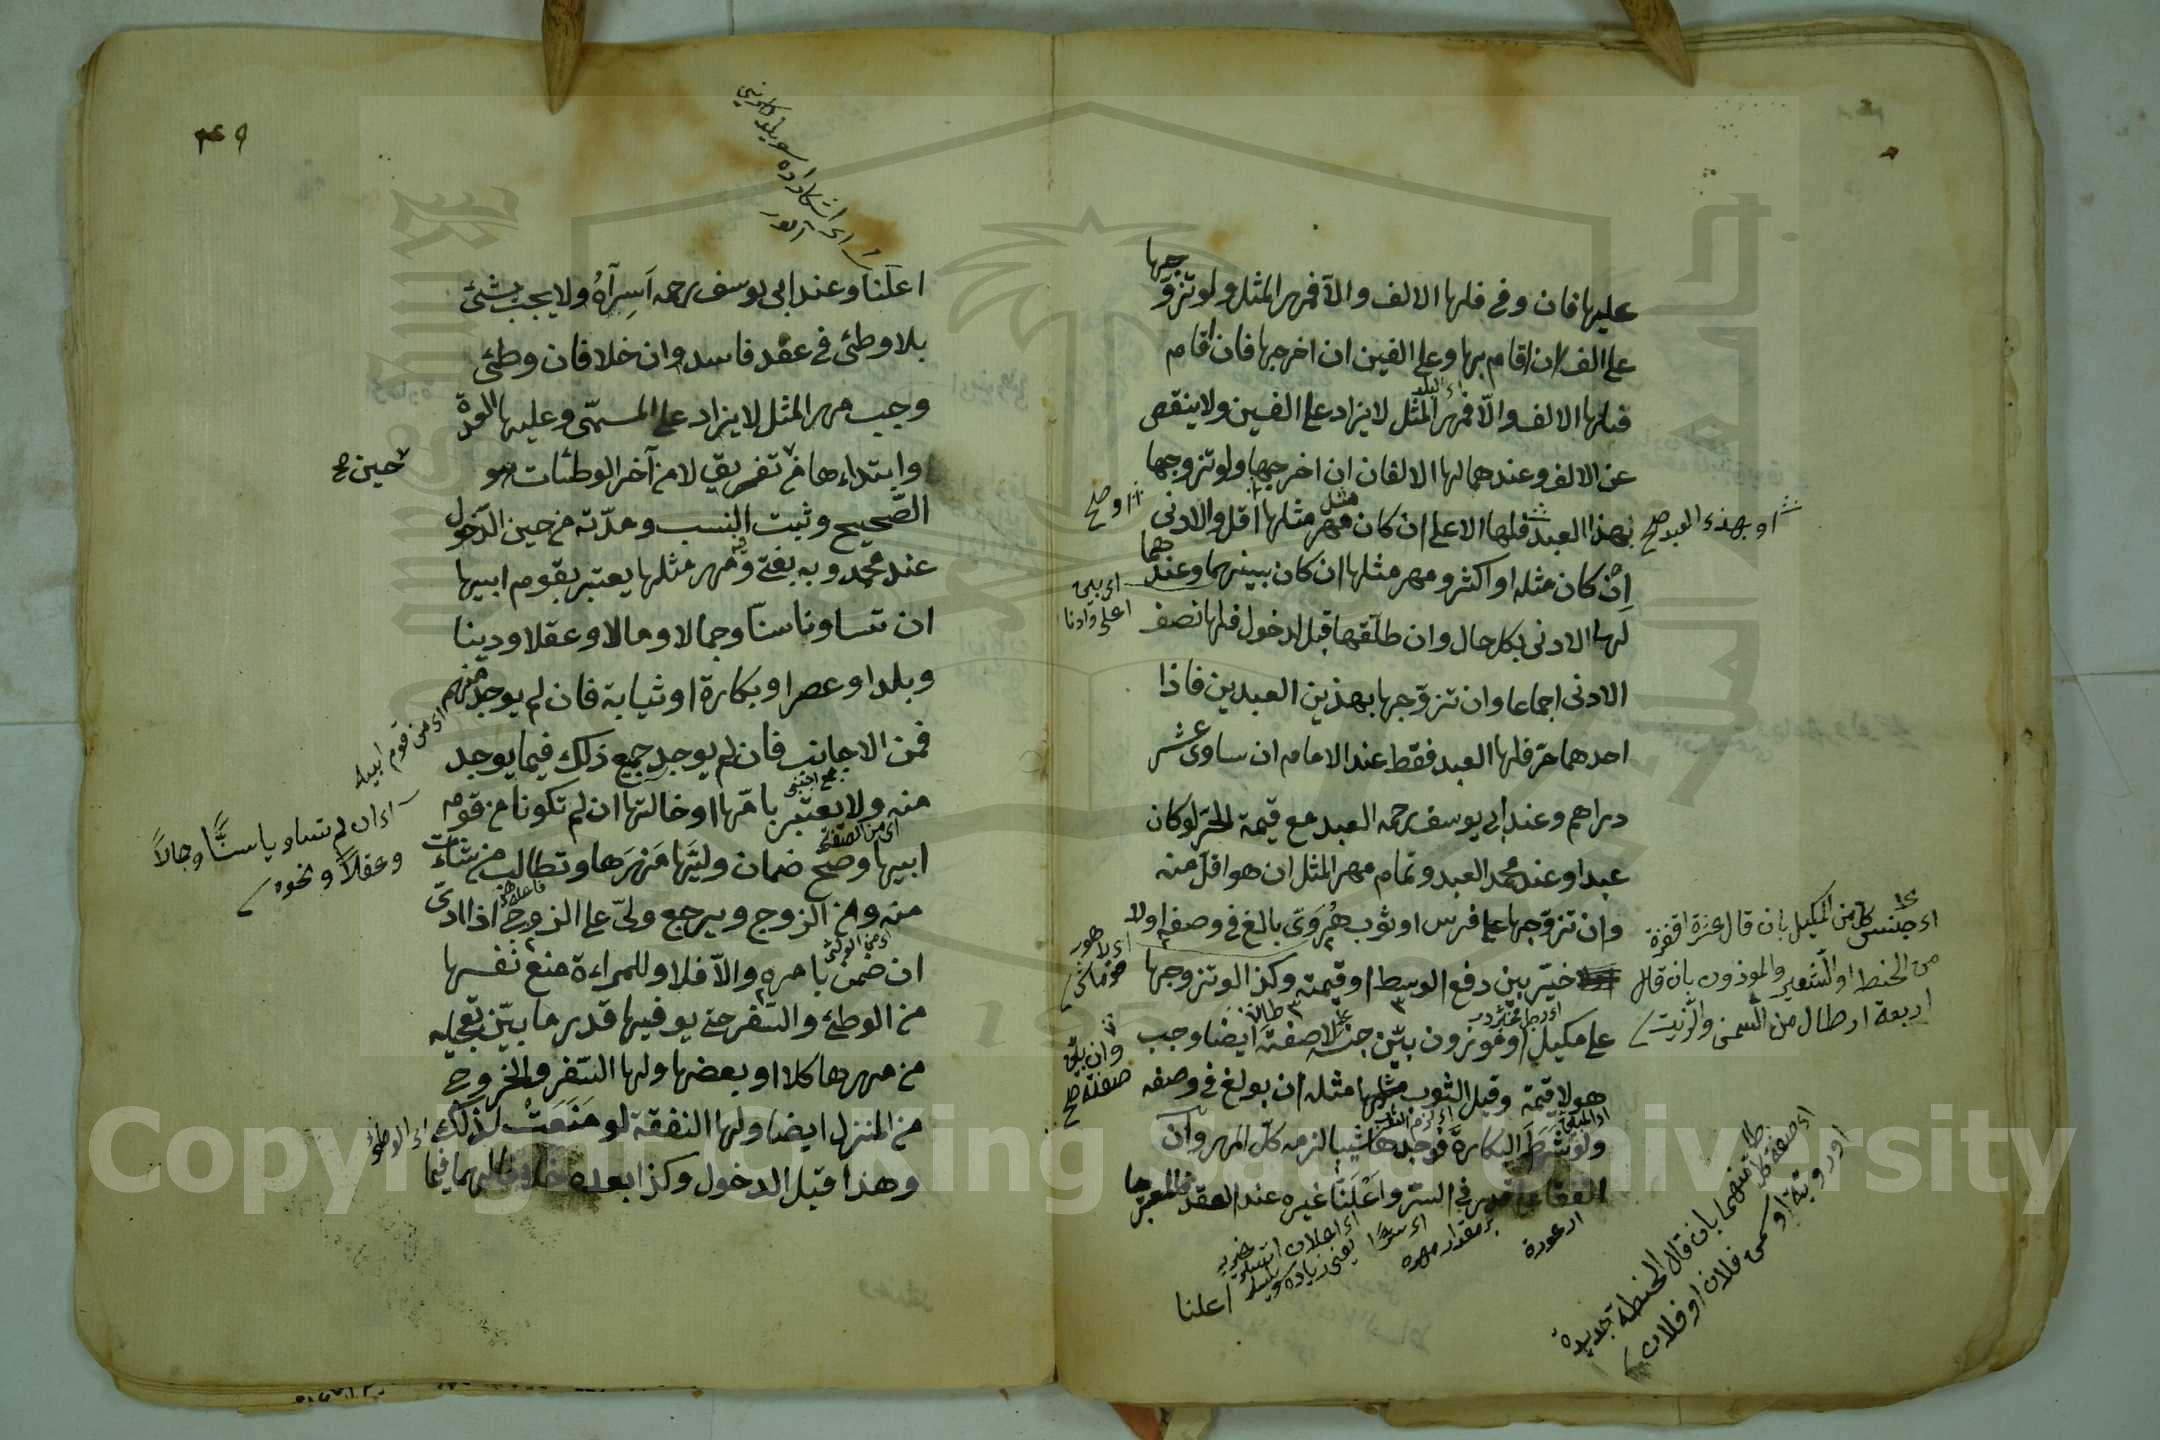 عليها فان وفى فلها الالف والآ فمهر المثل ولو تزوجها
على الف ان اقام بها وعلى الفين ان اخرجها فان اقام
فلها الالف والّا فمهر المثل لا يزاد على الفين ولا ينقص
عن الالف وعندهما لها الالفان ان اخرجها ولو تزوجها
بهذا العبد فلها الاعلى ان كان مهر مثلها اقل والادنى
او بهذه العبد صح
ان كان مثله او اكثر ومهر مثلها ان كان بينهما وعندهما
لها الادنى بكل حال وان طلّقها قبل الدخول فلها نصف
الادنى اجماعا وان تزوّجها بهذين العبدين فاذا
احدهما حرّ فلها العبد فقط عند الامام ان ساوى عشر
دراهم وعند ابي يوسف رحمه العبد مع قيمة الحرّ لو كان
عبدا وعند محمد العبد وتمام مهر المثل ان هو اقلّ منه
وان تزوّجها على فرس او ثوب هَرَوىّ بالغ في وصفه اولا
خيّر بين دفع الوسط او قيمته وكذا لو تزوجها
على مكيل او موزون بيّن جنسه لا صفته ايضا وجب
وان بيّن صفته صح
هو لا قيمة وقيل الثوب مثلها مثله ان بولغ في وصفه
ولو شَرَطَ البكارةَ فوجدها ثيبا لزمه كلّ المهر وان
اتفقا على قدر في السّر واَعْلَنَا غيره عند العقد فالمعتبر ما
اعلنا
اى جنس كل من المكيل بان قال عشرة اقفزة
من الحنطه او الشعير والموذون بان قال
اربعة ارطال من السمن والزيت
اى صفة كل منهما بان قال الحنطة جديدة
او روية او سمن فلان او فلان
اعلَنَا وعند ابي يوسف رحمه اَسِرآهُ ولا يجب شئ
بلا وطئ في عقد فاسد وان خلا فان وطئ
وجب مهر المثل لا يزاد على المسمّى وعليها العدة
وابتداءها من تفريق لا من آخر الوطئات هو
حين صح
الصّحيح وثبت النسب ومدّته من حين الدّخول
عند محمد وبه يفتى ومهر مثلها يعتبر بقوم ابيها
ان تساوتا سنّا وجمالا ومالا وعقلا ودينا
وبلدا وعصرا وبكارة او ثيابة فان لم يوجد منهم
اى من قوم ابيه
فمن الاجانب فان لم يوجد جميع ذلك فيما يوجد
منه ولا يعتبر بامّها او خالتها ان لم تكونا من قوم
ابيها وصحّ ضمان وليّها مَهْرَها وتطالب من شاءت
منه ومن الزوج ويرجع ولىّ على الزوج اذا ادىّ
ان ضمن بامره والآ فلا وللمراءة منع نفسها
من الوطئ والسّفر حتى يوفيها قدر ما بيّن تعجيله
من مهرها كلا او بعضها ولها السّفر والخروج
من المنزل ايضا ولها النفقة لو مَنَعَتْ لذلك
وهذا قبل الدخول وكذا بعده خلافا لهما فيما
اى ان لم تساويا سنًّا وجمالاً
وعقلاً ونحوه